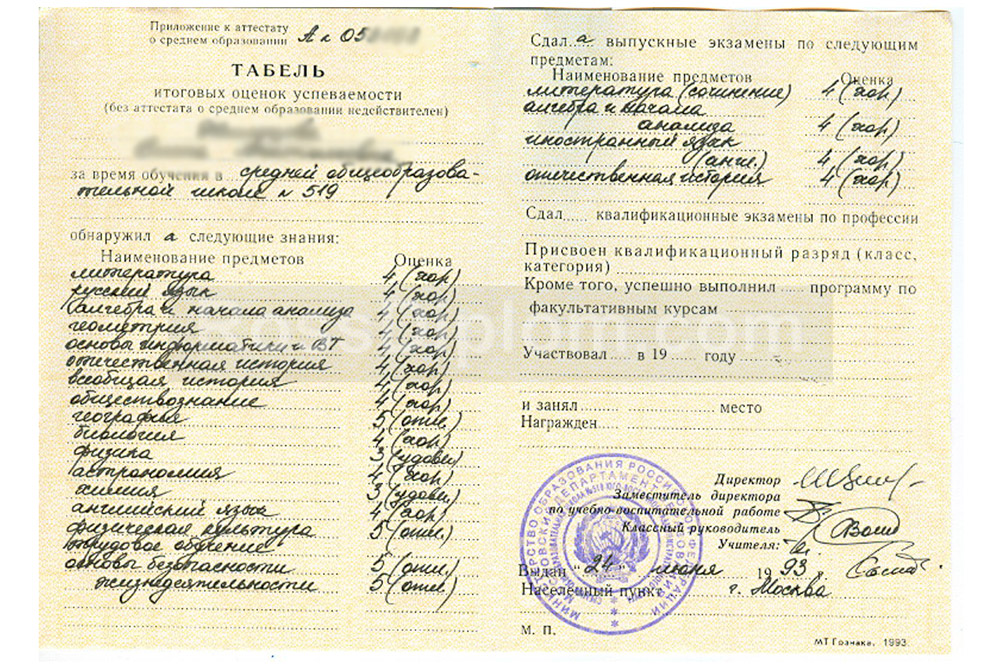 Приложение к аттестату
о среднем образовании А л 05
ТАБЕЛЬ
итоговых оценок успеваемости
(без аттестата о среднем образовании недействителен)
за время обучения в средней общеобразова-
тельной школе n 519
обнаружил а следующие знания:
Наименование предметов Оценка
литература 4 (хор)
русский язык 4 (хор)
алгебра и начала анализа 4 (хор)
геометрия 4 (хор)
основы информатики и ВТ 4 (хор)
отечественная история 4 (хор)
всеобщая история 4 (хор)
обществознание 4 (хор)
география 5 (отл.)
биология 4 (хор)
физика 3 (удовл)
астрономия 4 (хор)
химия 3 (удовл)
английский язык 4 (хор)
физическая культура 5 (отл.)
трудовое обучение
основы безопасности 5 (отл)
жизнедеятельности 5 (отл)
Сдал а выпускные экзамены по следующим
предметам:
Наименование предметов Оценка
литература (сочинение) 4 (хор)
алгебра и начала
анализа 4 (хор)
иностранный язык
(англ.) 4 (хор)
отечественная история 4 (хор)
Сдал..... квалификационные экзамены по профессии
Присвоен квалификационный разряд (класс,
категория)
Кроме того, успешно выполнил ..... программу по
факультативным курсам
Участвовал в 19 ..... году
и занял место
Награжден
Директор
Заместитель директора
по учебно-воспитательной работе
Классный руководитель
Учителя:
Выдан "24" июня 1993 г.
Населенный пункт г. Москва
М. П.
МТ Гознака. 1993.
МИНИСТЕРСТВО ОБРАЗОВАНИЯ РОССИЙСКОЙ ФЕДЕРАЦИИ